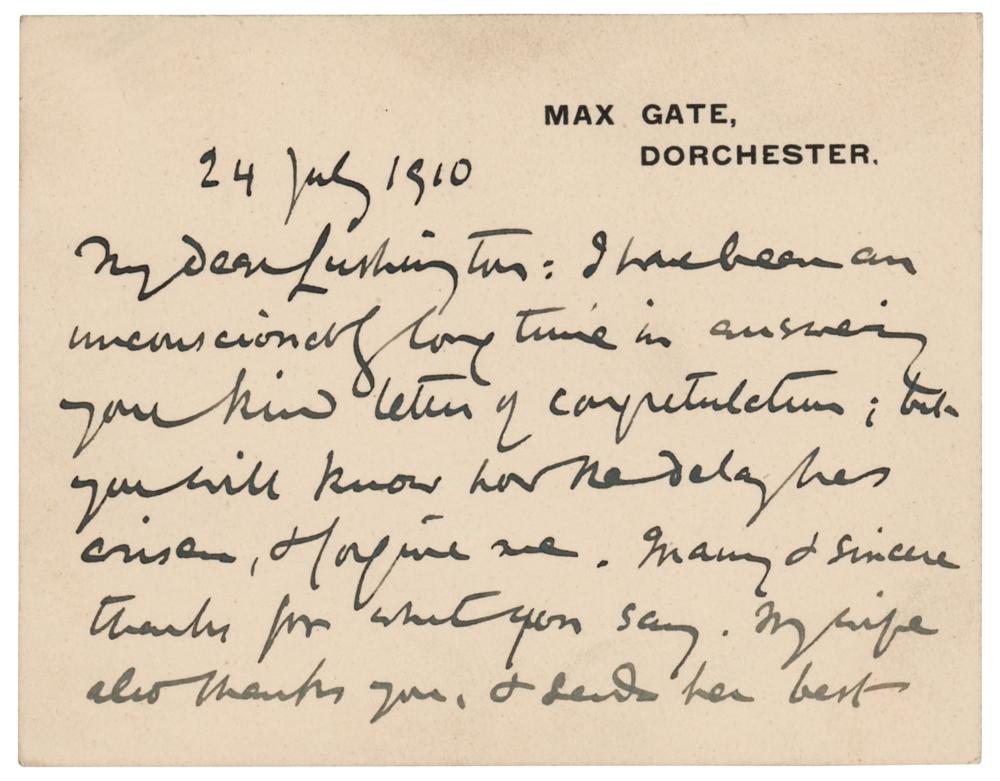 MAX GATE,
DORCHESTER.
24 July 1910
My dear Lushington: I have been an
unconscionably long time in answering
your kind letter of congratulation; but
you will know how the delay has
arisen, & forgive me. Many & sincere
thanks for what you say. My wife
also thanks you, & sends her best